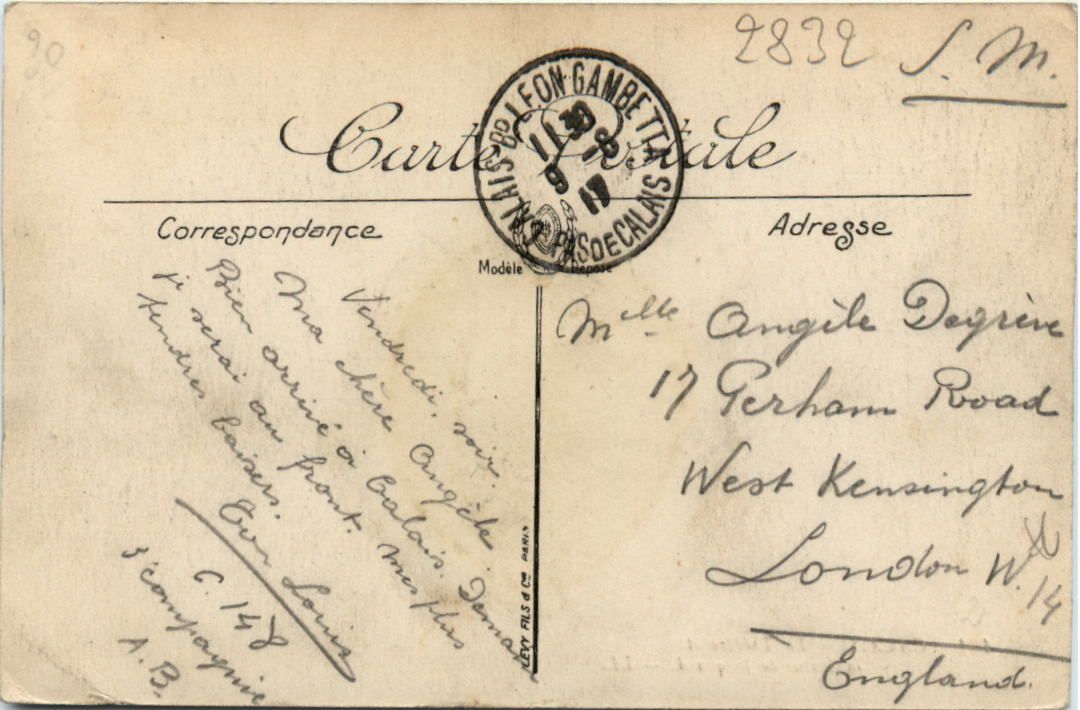 90
2832 S. M.
Carte Postale
CALAIS Bd LEON GAMBETTA
PAS DE CALAIS
11 30
9 17
Correspondance
Adresse
Modèle Déposé
Vendredi, soir.
Ma chère Angèle
Bien arrivé à Calais. Demain
je serai au front. Mes plus
tendres baisers.
Ton Louis
C. 148
compagnie
A. B.
LEVY FILS & Cie PARIS
Melle Angèle Degrève
17 Perham Road
West Kensington
London W. 14
England.